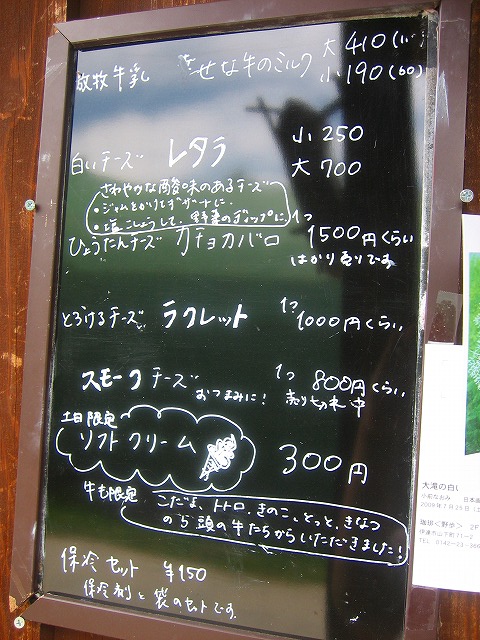 放牧牛乳 しあわせな牛のミルク 大410
小190(60)
白いチーズ レタラ 小 250
大 700
さわやかな酸味のあるチーズ
・ジャムをかけてデザートに。
・塩こしょうして、野菜のディップに
ひょうたんチーズ カチョカバロ 1つ 1500円くらい
はかり売りです
とろけるチーズ ラクレット 1つ 1000円くらい
スモークチーズ 1つ 800円くらい
おつまみに! 売り切れ中
土日限定
ソフトクリーム 300円
牛も限定 こだま、トトロ、きのこ、とっと、きなこ
の5頭の牛たちからいただきました!
保冷セット ¥150
保冷剤と袋のセットです
大滝の白い
小前なおみ 日本画
2009年7月25日(土
珈琲<野歩> 2F
伊達市山下町71-2
TEL. 0142-23-